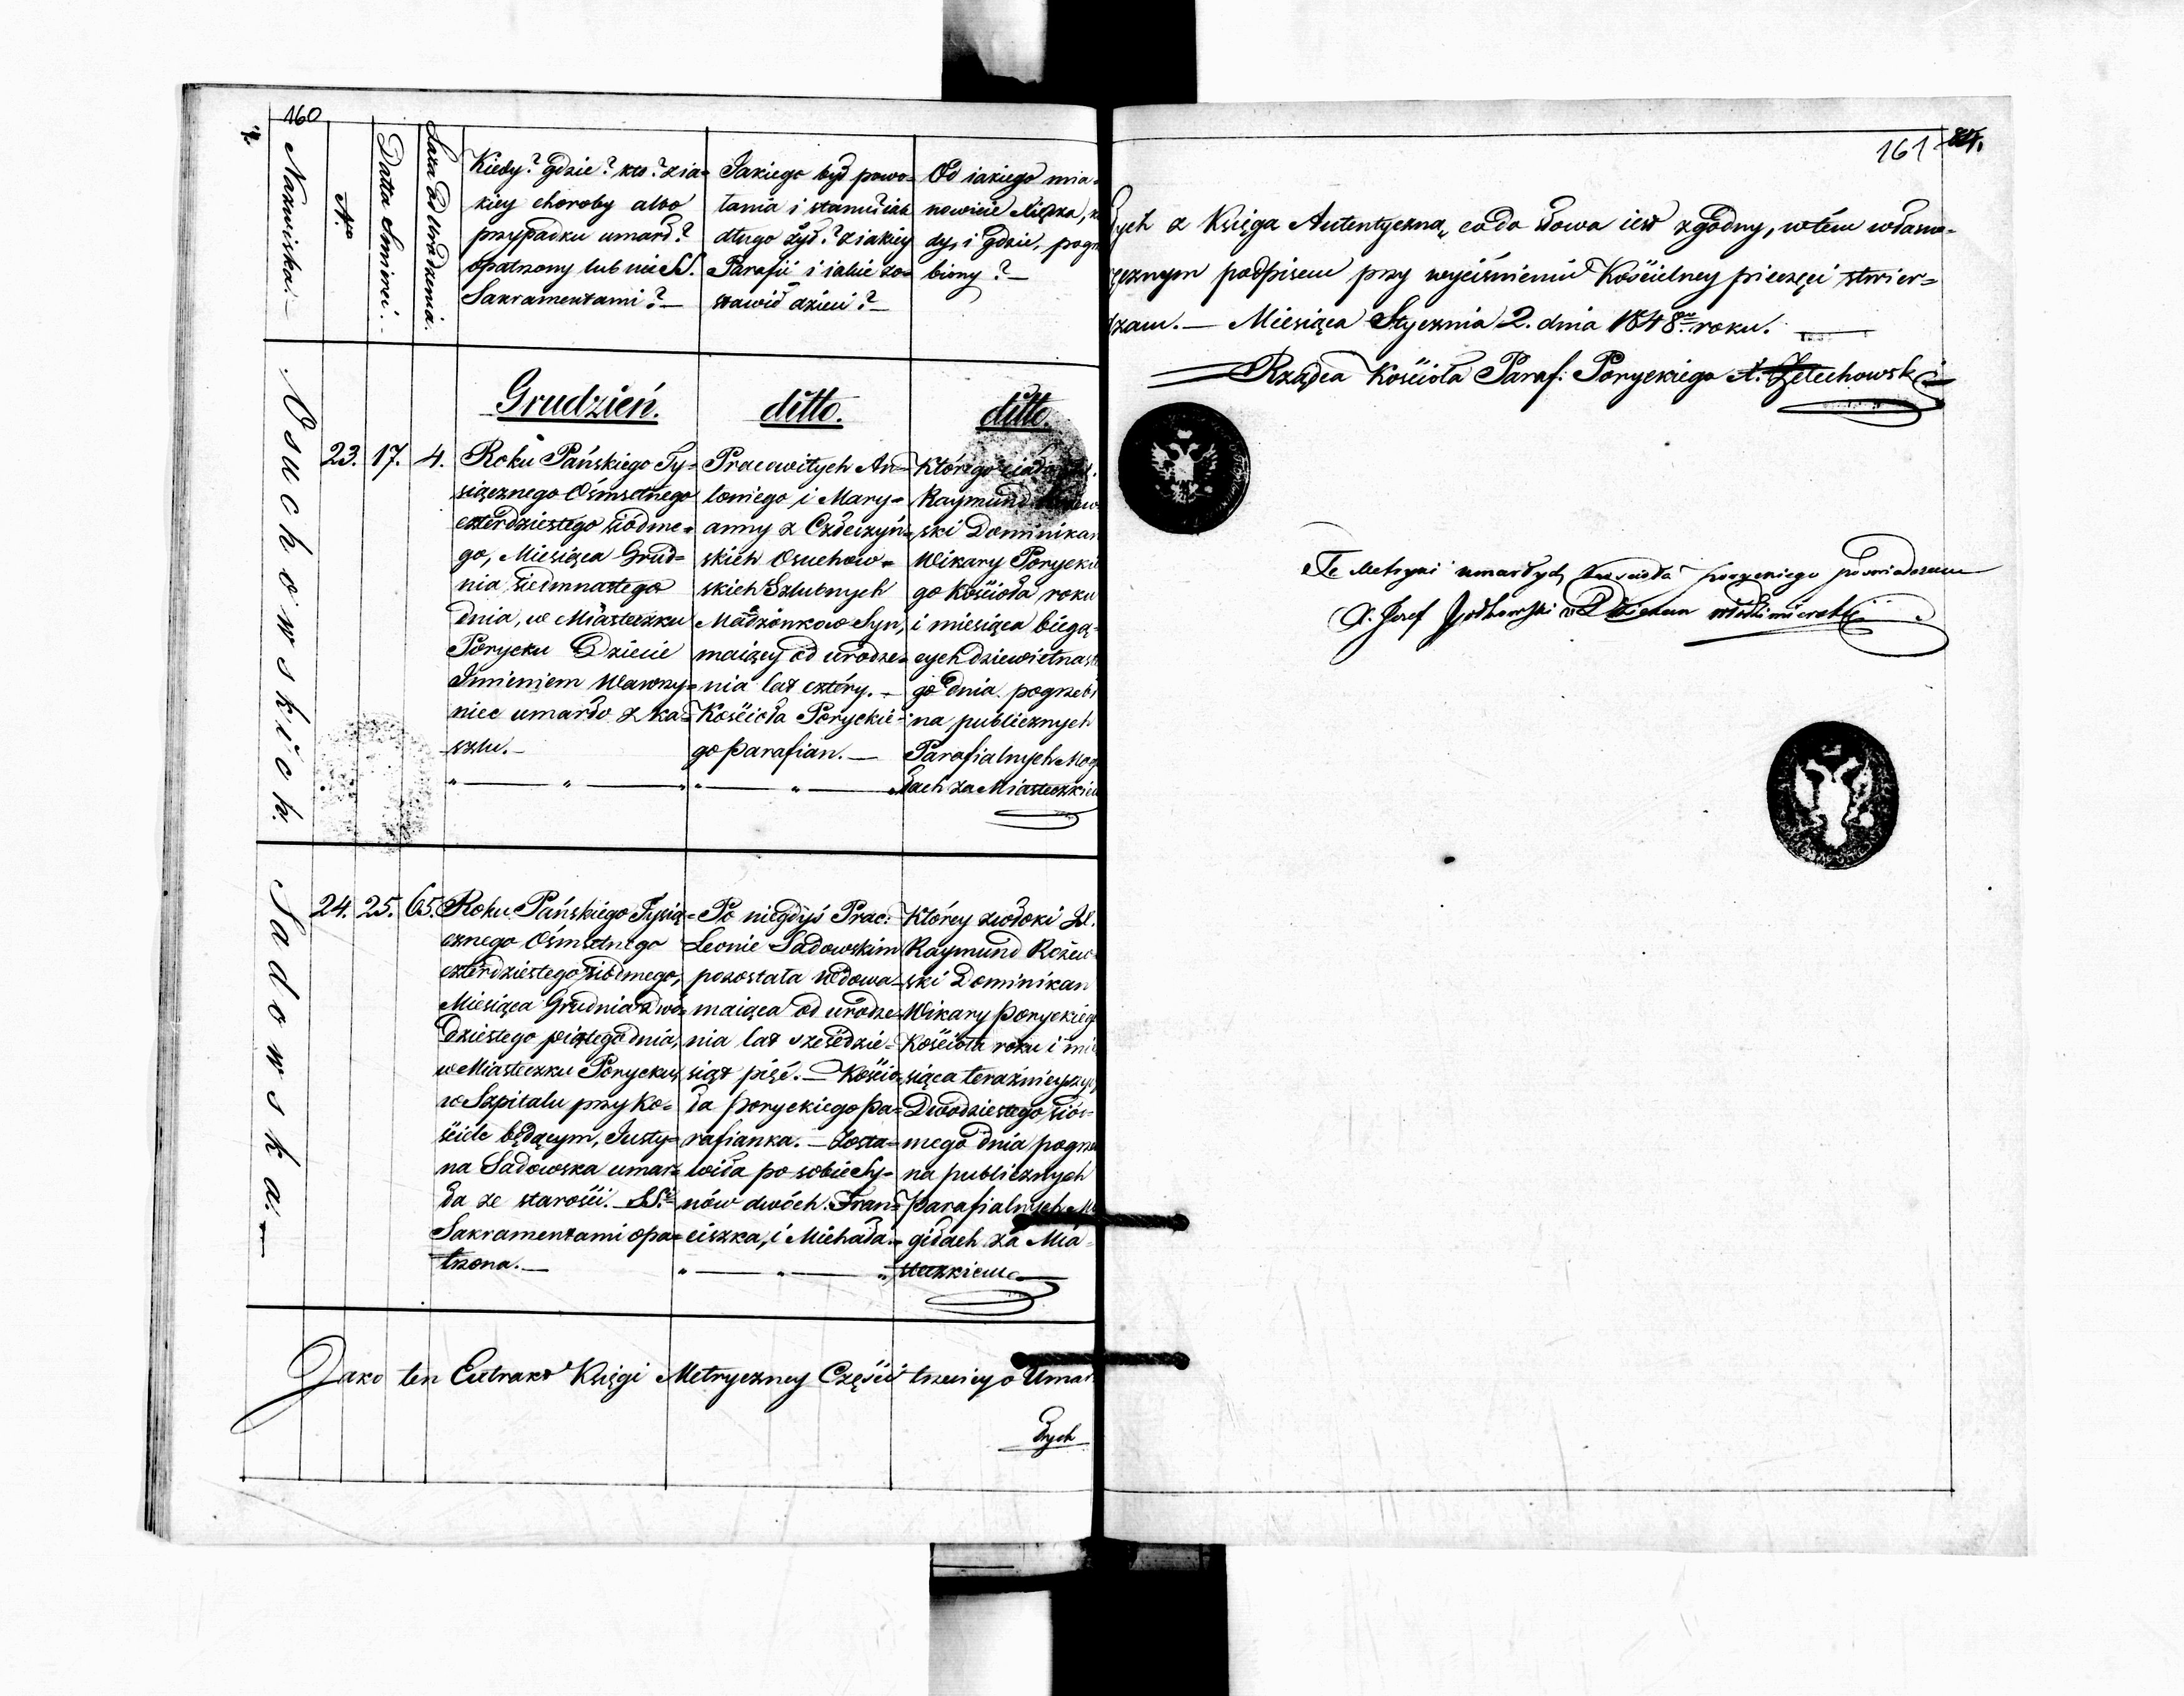 160
Nazwiska.
No
Datta Śmierci.
Lata Od Urodzenia.
Kiedy? gdzie? kto? z ia=
kiey choroby albo
przypadku umarł?
opatrzony lub nie SS.
Sakramentami?
Jakiego był powo=
łania i stanu? iak
długo żył? z iakiey
Parafii i iakie zo=
stawił dzieci?
Od iakiego mia=
nowicie Xiędza,
dy, i gdzie, pogrze
biony?
Grudzień.
ditto.
ditto.
Osuchowskich.
23. 17. 4.
Roku Pańskiego Ty=
siącznego Ośmsetnego
czterdziestego siódme=
go, Miesiąca Grud=
nia siedmnastego
dnia, w Miasteczku
Porycku Dziecie
Imieniem Wawrzy=
niec umarło z ka=
szlu.
Pracowitych An=
toniego i Mary=
anny z
skich Osuchow=
skich Szlubnych
Małżonków Syn,
maiący od urodze=
nia lat cztéry.
Kościoła Poryckie=
go parafian.
Którego ciało
Raymund
ski Dominikan
Wikary Porycki
go Kościoła, roku
i miesiąca biegą=
cych dziewietnaste
go dnia pogrzebi
na publicznych
Parafialnych Mog
łach za Miasteczkiem
Sadowska.
24. 25. 65.
Roku Pańskiego Tysią=
cznego Ośmsetnego
czterdziestego siódmego,
Miesiąca Grudnia dwu
dziestego piątego dnia,
w Miasteczku Porycku,
w Szpitalu przy Ko=
ściele będącym, Justy=
na Sadowska umar=
ła ze starości. SS.
Sakramentami opa=
trzona.
Po niegdyś Prac:
Leonie Sadowskim
pozostała wdowa
maiąca od urodze=
nia lat sześćdzie=
siąt pięć. Kościo=
ła Poryckiego pa=
rafianka. Zosta=
wiła po sobie Sy=
nów dwóch. Fran=
ciszka, i Michała.
Którey zwłoki
Raymund Rożew
ski Dominikan
Wikary Poryckieg
Kościoła roku i mi
siąca teraźnieyszyc
Dwódziestego siód=
mego dnia pogrze
na publicznych
Parafialnych Mo
giłach za Mia=
steczkiem
Jako ten Extrakt Księgi Metryczney Części trzeciey o Umar
łych
161
łych z Księgą Autentyczną, co do słowa iest zgodny, w tém własno=
ręcznym podpisem przy wyciśnieniu Kościelney pieczęci stwier=
dzam. Miesiąca Stycznia 2. dnia 1848go roku.
Rządca Kościoła Paraf: Poryckiego X. Żelechowski
Te Metryki umarłych Kościoła poryckiego poświadczam
X. Józef